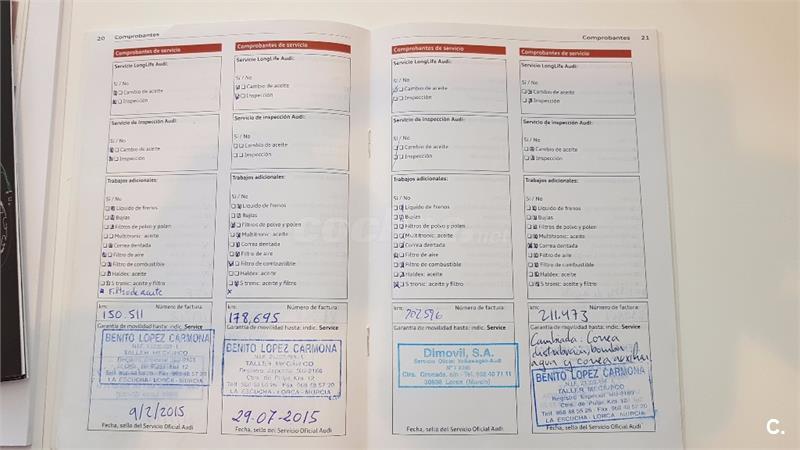 20 Comprobantes
Comprobantes de servicio
Servicio LongLife Audi:
Sí / No
Cambio de aceite
Inspección
Servicio de inspección Audi:
Sí / No
Cambio de aceite
Inspección
Trabajos adicionales:
Sí / No
Líquido de frenos
Bujías
Filtros de polvo y polen
Multitronic: aceite
Correa dentada
Filtro de aire
Filtro de combustible
Haldex: aceite
S tronic: aceite y filtro
Filtro de aceite
km: Número de factura:
150.511
Garantía de movilidad hasta: indic. Service
BENITO LOPEZ CARMONA
TALLER MECANICO
Ctra. de Pulpí Km. 12
LA ESCUCHA - LORCA - MURCIA
9/2/2015
Fecha, sello del Servicio Oficial Audi
Comprobantes de servicio
Servicio LongLife Audi:
Sí / No
Cambio de aceite
Inspección
Servicio de inspección Audi:
Sí / No
Cambio de aceite
Inspección
Trabajos adicionales:
Sí / No
Líquido de frenos
Bujías
Filtros de polvo y polen
Multitronic: aceite
Correa dentada
Filtro de aire
Filtro de combustible
Haldex: aceite
S tronic: aceite y filtro
km: Número de factura:
178,695
Garantía de movilidad hasta: indic. Service
BENITO LOPEZ CARMONA
TALLER MECANICO
Ctra. de Pulpí Km. 12
LA ESCUCHA - LORCA - MURCIA
29-07-2015
Fecha, sello del Servicio Oficial Audi
Comprobantes 21
Comprobantes de servicio
Servicio LongLife Audi:
Sí / No
Cambio de aceite
Inspección
Servicio de inspección Audi:
Sí / No
Cambio de aceite
Inspección
Trabajos adicionales:
Sí / No
Líquido de frenos
Bujías
Filtros de polvo y polen
Multitronic: aceite
Correa dentada
Filtro de aire
Filtro de combustible
Haldex: aceite
S tronic: aceite y filtro
km: Número de factura:
202596
Garantía de movilidad hasta: indic. Service
Dimovil, S.A.
Servicio Oficial Volkswagen-Audi
Ctra. Granada, s/n - Tel. 968 46 71 11
30800 Lorca (Murcia)
Fecha, sello del Servicio Oficial Audi
Comprobantes de servicio
Servicio LongLife Audi:
Sí / No
Cambio de aceite
Inspección
Servicio de inspección Audi:
Sí / No
Cambio de aceite
Inspección
Trabajos adicionales:
Sí / No
Líquido de frenos
Bujías
Filtros de polvo y polen
Multitronic: aceite
Correa dentada
Filtro de aire
Filtro de combustible
Haldex: aceite
S tronic: aceite y filtro
km: Número de factura:
211.473
Garantía de movilidad hasta: indic. Service
Cambiada: Correa
distribucion, bomba
agua y correa
BENITO LOPEZ CARMONA
TALLER MECANICO
Ctra. de Pulpí Km. 12
LA ESCUCHA - LORCA - MURCIA
Fecha, sello del Servicio Oficial Audi
C.